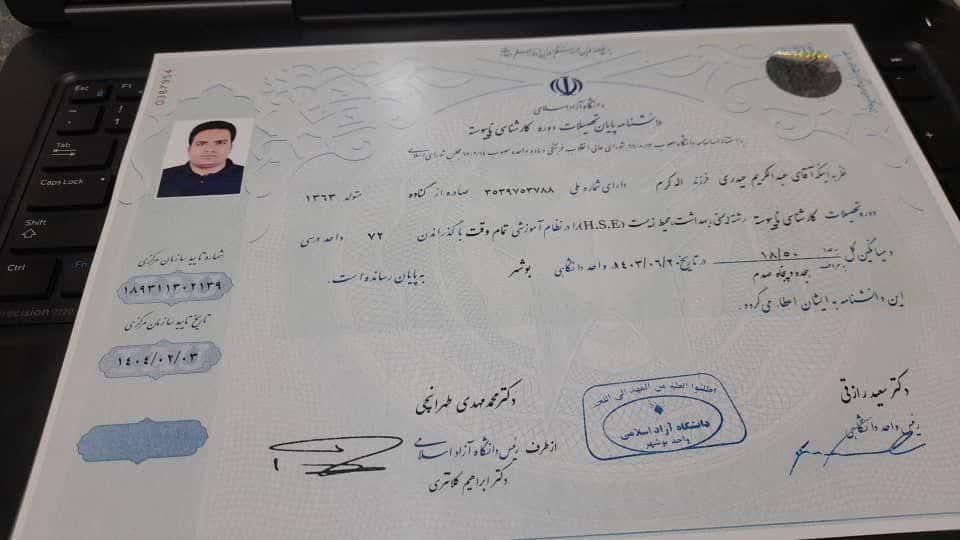 دانشگاه آزاد اسلامی
دانشنامه پایان تحصیلات دوره کارشناسی ناپیوسته
نظر به اینکه آقای عبدالکریم حیدری فرزند اله کرم دارای شماره ملی ۳۵۳۹۷۵۳۷۸۸ صادره از گناوه متولد ۱۳۶۳
دوره تحصیلات کارشناسی ناپیوسته رشته ایمنی، بهداشت، محیط زیست (H.S.E) را در نظام آموزشی تمام وقت با گذراندن ۷۲ واحد درسی
و میانگین کل به عدد ۱۸/۵۰ به حروف هجده و پنجاه صدم در تاریخ ۱۴۰۳/۰۶/۲۰ واحد دانشگاهی بوشهر به پایان رسانده است.
این دانشنامه به ایشان اعطا می گردد.
0387954
شماره تایید سازمان مرکزی
۱۸۹۳۱۱۳۰۲۱۳۹
تاریخ تایید سازمان مرکزی
۱۴۰۴/۰۲/۰۳
دکتر سعید رازقی
رئیس واحد دانشگاهی
اطلبوا العلم من المهد الی اللحد
دانشگاه آزاد اسلامی
واحد بوشهر
دکتر محمد مهدی طهرانچی
رئیس دانشگاه آزاد اسلامی
از طرف
دکتر ابراهیم کلانتری
Esc
F1
!
1
Tab
Caps Lock
Shift
Ctrl
Fn
Precision 7720